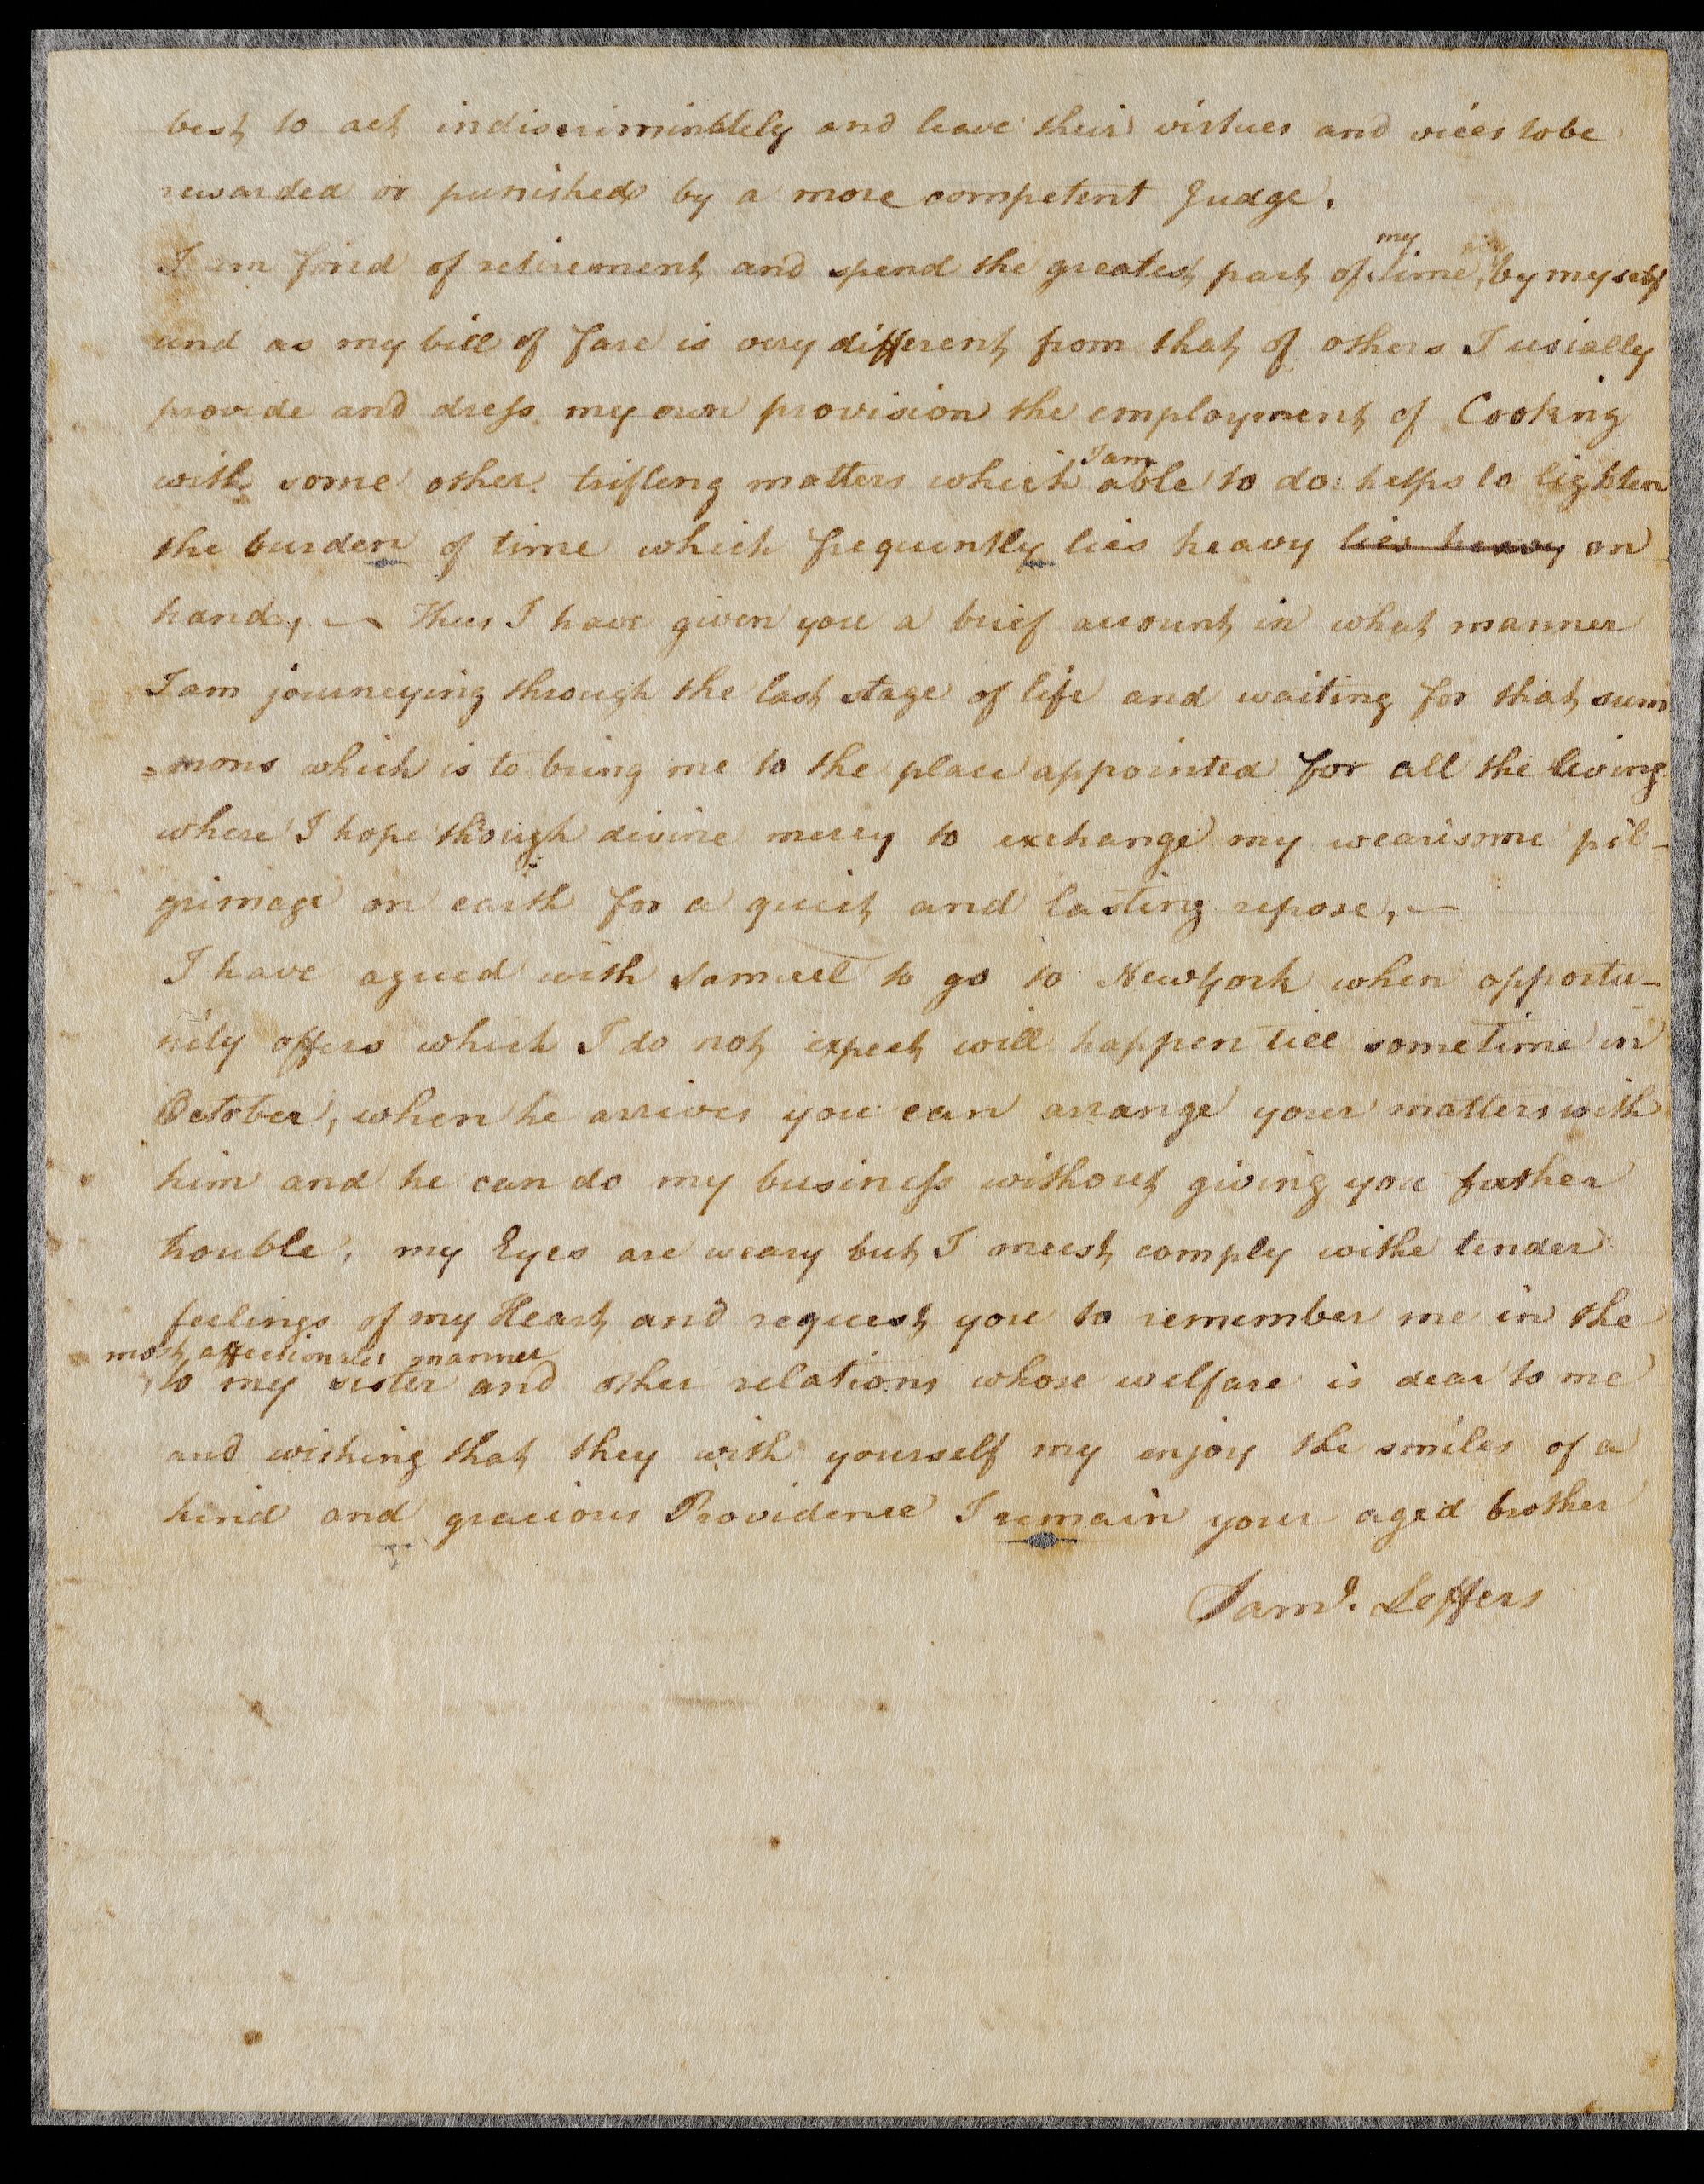 best to act indiscriminately and leave their virtues and vices to be
rewarded or punished by a more competent Judge.
I am fond of retirement and spend the greatest part of my time by myself
and as my bill of fare is very different from that of others I usially
provide and dress my own provision the employment of Cooking
with some other trifleng matters which I am able to do helps to lighten
the burden of time which frequently lies heavy lies heavy on
hand, — Thus I have given you a brief account in what manner
I am journeying through the last stage of life and waiting for that sum
=mons which is to bring me to the place appointed for all the living
where I hope through divine mercy to exchange my wearisome pil-
grimage on earth for a quiet and lasting repose, —
I have agreed with Samuel to go to New York when opportu-
nity offers which I do not expect will happen till sometime in
October, when he arrives you can arrange your matters with
him and he can do my business without giving you further
trouble, my Eyes are weary but I must comply withe tender
feelings of my Heart and request you to remember me in the
most affectionates manner
to my sister and other relations whose welfare is dear to me
and wishing that they with yourself my enjoy the smiles of a
kind and gracious Providence I remain your aged brother
Saml. Leffers